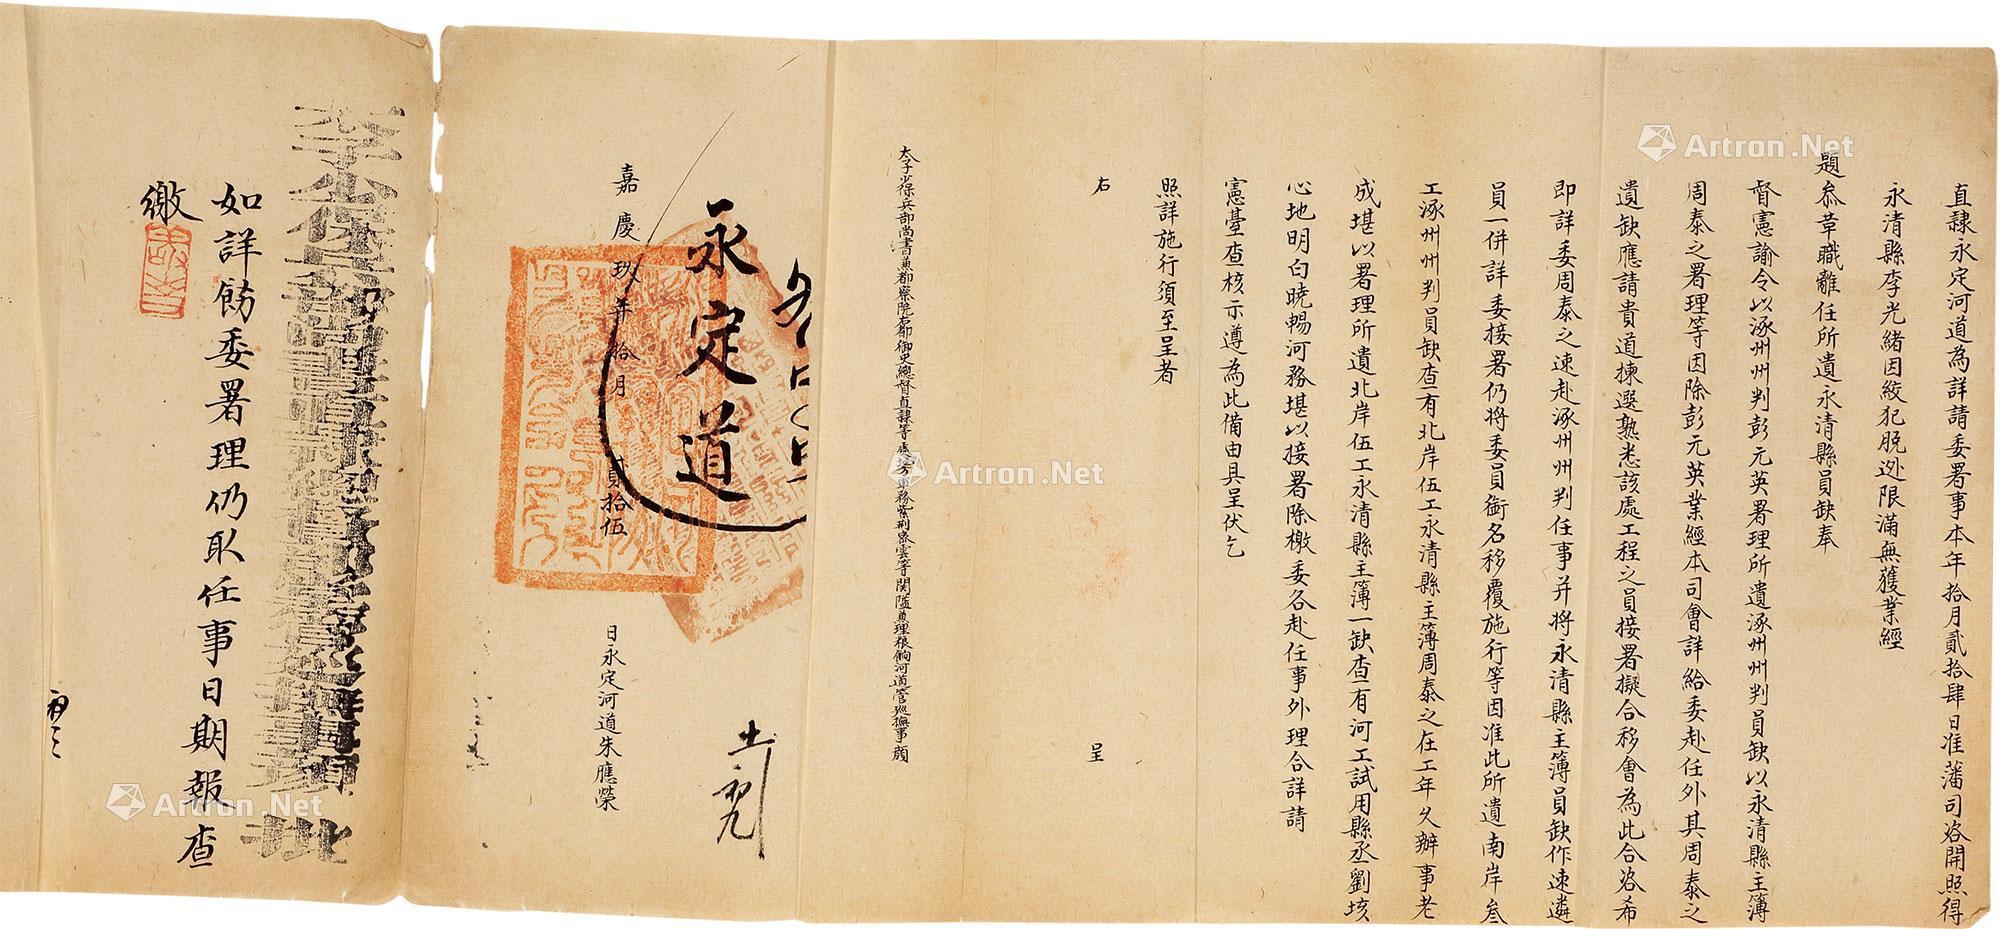 直隸永定河道為詳請委署事本年拾月貳拾肆日准藩司咨開照得
永清縣李光緒因絞犯脫逃限滿無獲業經
題叅革職離任所遺永清縣員缺奉
督憲諭令以涿州州判彭元英署理所遺涿州州判員缺以永清縣主簿
周泰之署理等因除彭元英業經本司會詳給委赴任外其周泰之
遺缺應請貴道揀選熟悉該處工程之員接署擬合移會為此合咨希
即詳委周泰之速赴涿州州判任事并將永清縣主簿員缺作速遴
員一併詳委接署仍將委員銜名移覆施行等因准此所遺南岸叁
工涿州州判員缺查有北岸伍工永清縣主簿周泰之在工年久辦事老
成堪以署理所遺北岸伍工永清縣主簿一缺查有河工試用縣丞劉垓
心地明白曉暢河務堪以接署除檄委各赴任事外理合詳請
憲臺查核示遵為此備由具呈伏乞
照詳施行須至呈者
右 呈
太子少保兵部尚書兼都察院右都御史總督直隸等處地方軍務紫荊密雲等關隘兼理糧餉河道管巡撫事顏
永定道
十一 初九
嘉慶玖年拾月 貳拾伍 日永定河道朱應榮
批
如詳飭委署理仍取任事日期報查
繳
初三
Artron.Net
Artron.Net
Artron.Net
Artron.Net
Artron.Net
Artron.Net